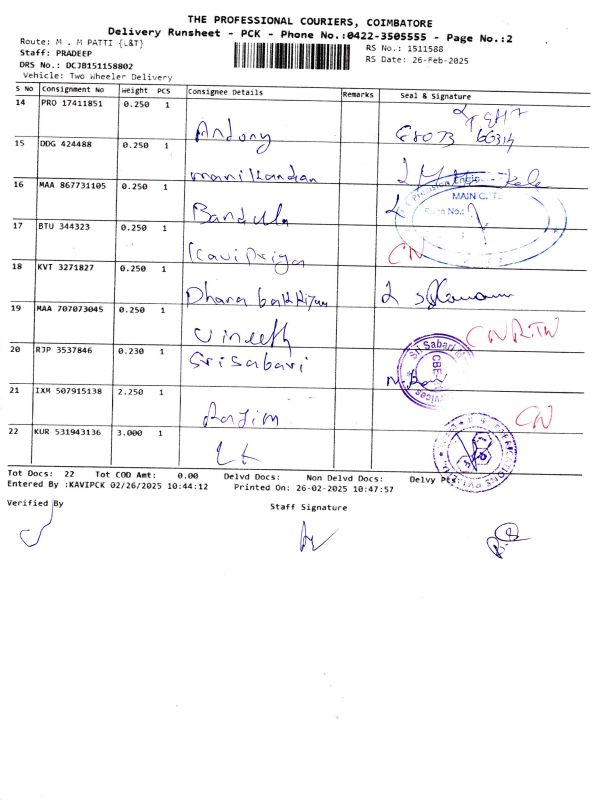 THE PROFESSIONAL COURIERS, COIMBATORE
Delivery Runsheet - PCK - Phone No.:0422-3505555 - Page No.:2
Route: M . M PATTI {L&T}
RS No.: 1511588
Staff: PRADEEP
RS Date: 26-Feb-2025
DRS No.: DCJB151158802
Vehicle: Two Wheeler Delivery
S No Consignment No Weight PCS Consignee Details Remarks Seal & Signature
14 PRO 17411851 0.250 1
Antony
15 DDG 424488 0.250 1
manikandan
16 MAA 867731105 0.250 1
MAIN GATE
Bandula
17 BTU 344323 0.250 1
Kavipriya CN
18 KVT 3271827 0.250 1
19 MAA 707073045 0.250 1
Vineeth CN RTN
20 RJP 3537846 0.230 1
Srisabari
Sri Sabari
CBE
21 IXM 507915138 2.250 1
CN
22 KUR 531943136 3.000 1
Tot Docs: 22 Tot COD Amt: 0.00 Delvd Docs: Non Delvd Docs: Delvy Pts:
Entered By :KAVIPCK 02/26/2025 10:44:12 Printed On: 26-02-2025 10:47:57
Verified By
Staff Signature